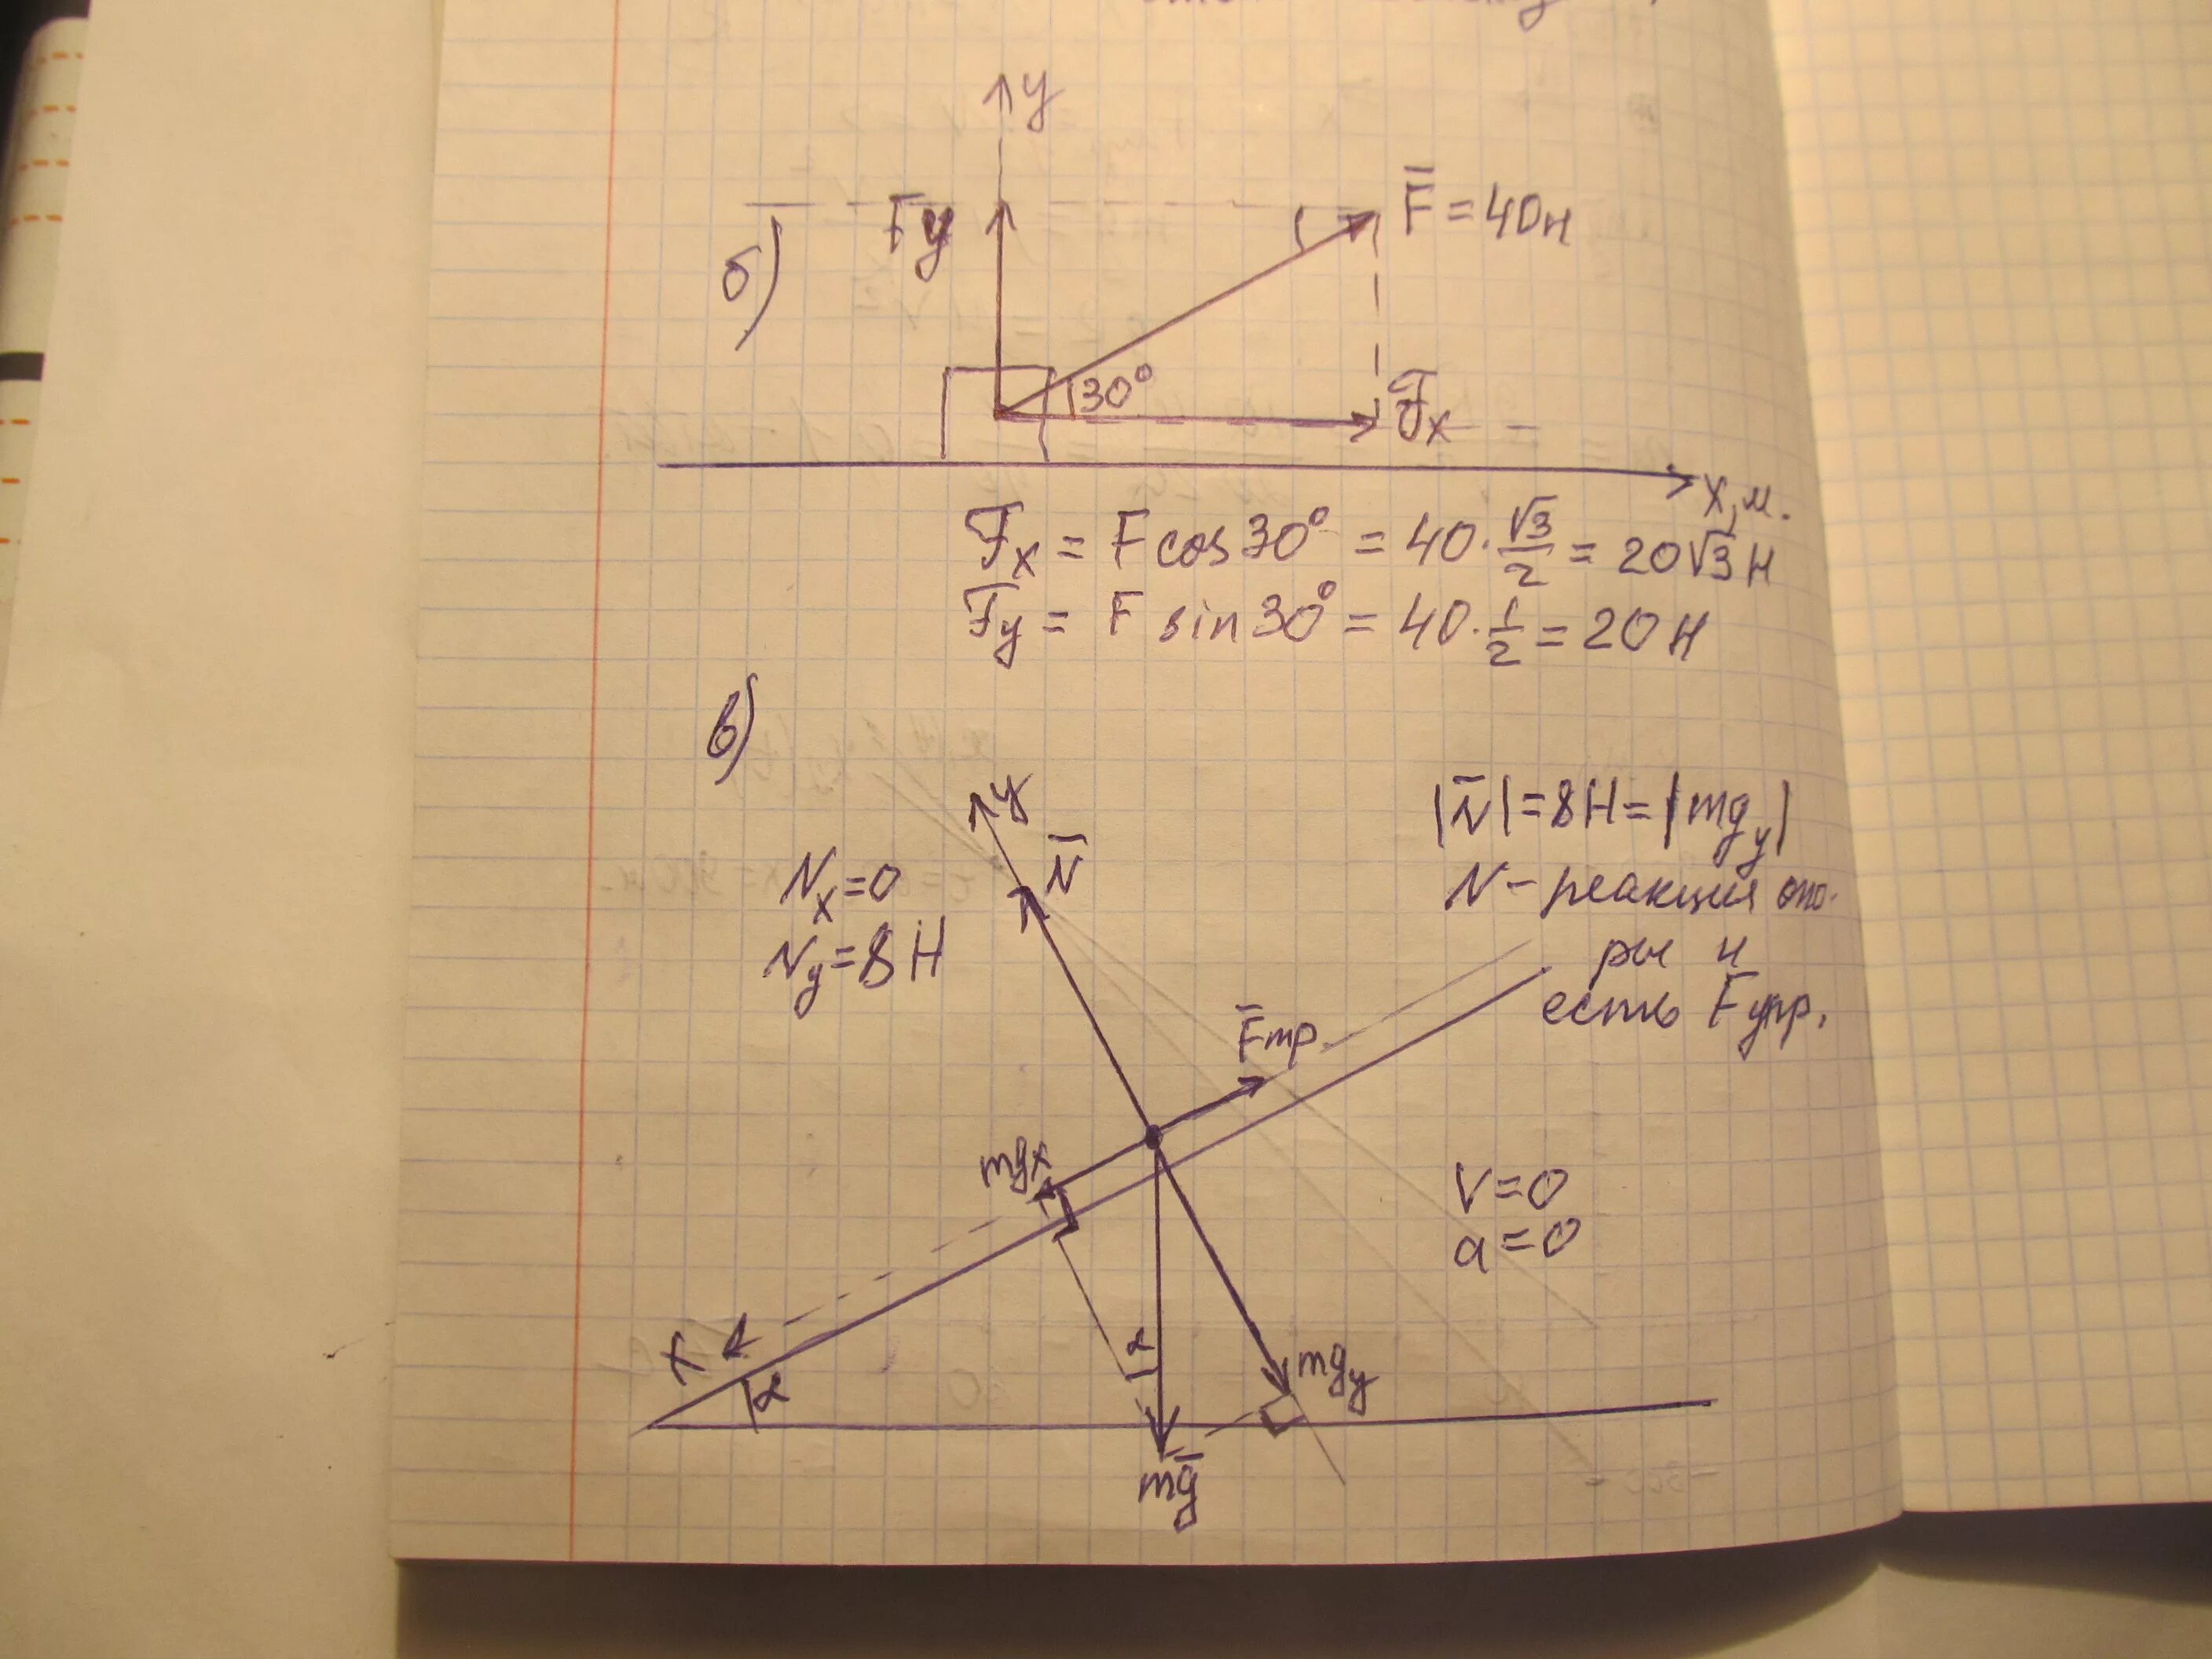 y
б)
Fy
F̅ = 40н
30°
Fx
x, м.
Fx = F cos 30° = 40 · √3/2 = 20√3 Н
Fy = F sin 30° = 40 · 1/2 = 20 Н
в)
y
N̅
|N̅| = 8Н = |mgy|
Nx = 0
N – реакция опо-
Ny = 8 Н
ры и
есть Fупр.
F̅тр.
mgx
V = 0
a = 0
α
x
α
mgy
mg̅